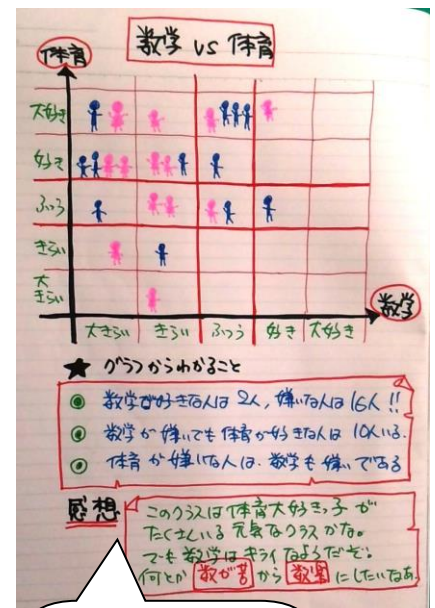 数学 vs 体育
体育
大好き
好き
ふつう
きらい
大きらい
数学
大きらい きらい ふつう 好き 大好き
★ グラフからわかること
◎ 数学が好きな人は 2人, 嫌いな人は 16人!!
◎ 数学が嫌いでも体育が好きな人は 10人いる.
◎ 体育が嫌いな人は. 数学も嫌いである
感想
このクラスは体育大好きっ子が
たくさんいる元気なクラスかな。
でも数学はキライなようだぞ。
何とか 数が苦 から 数楽 にしたいなあ.